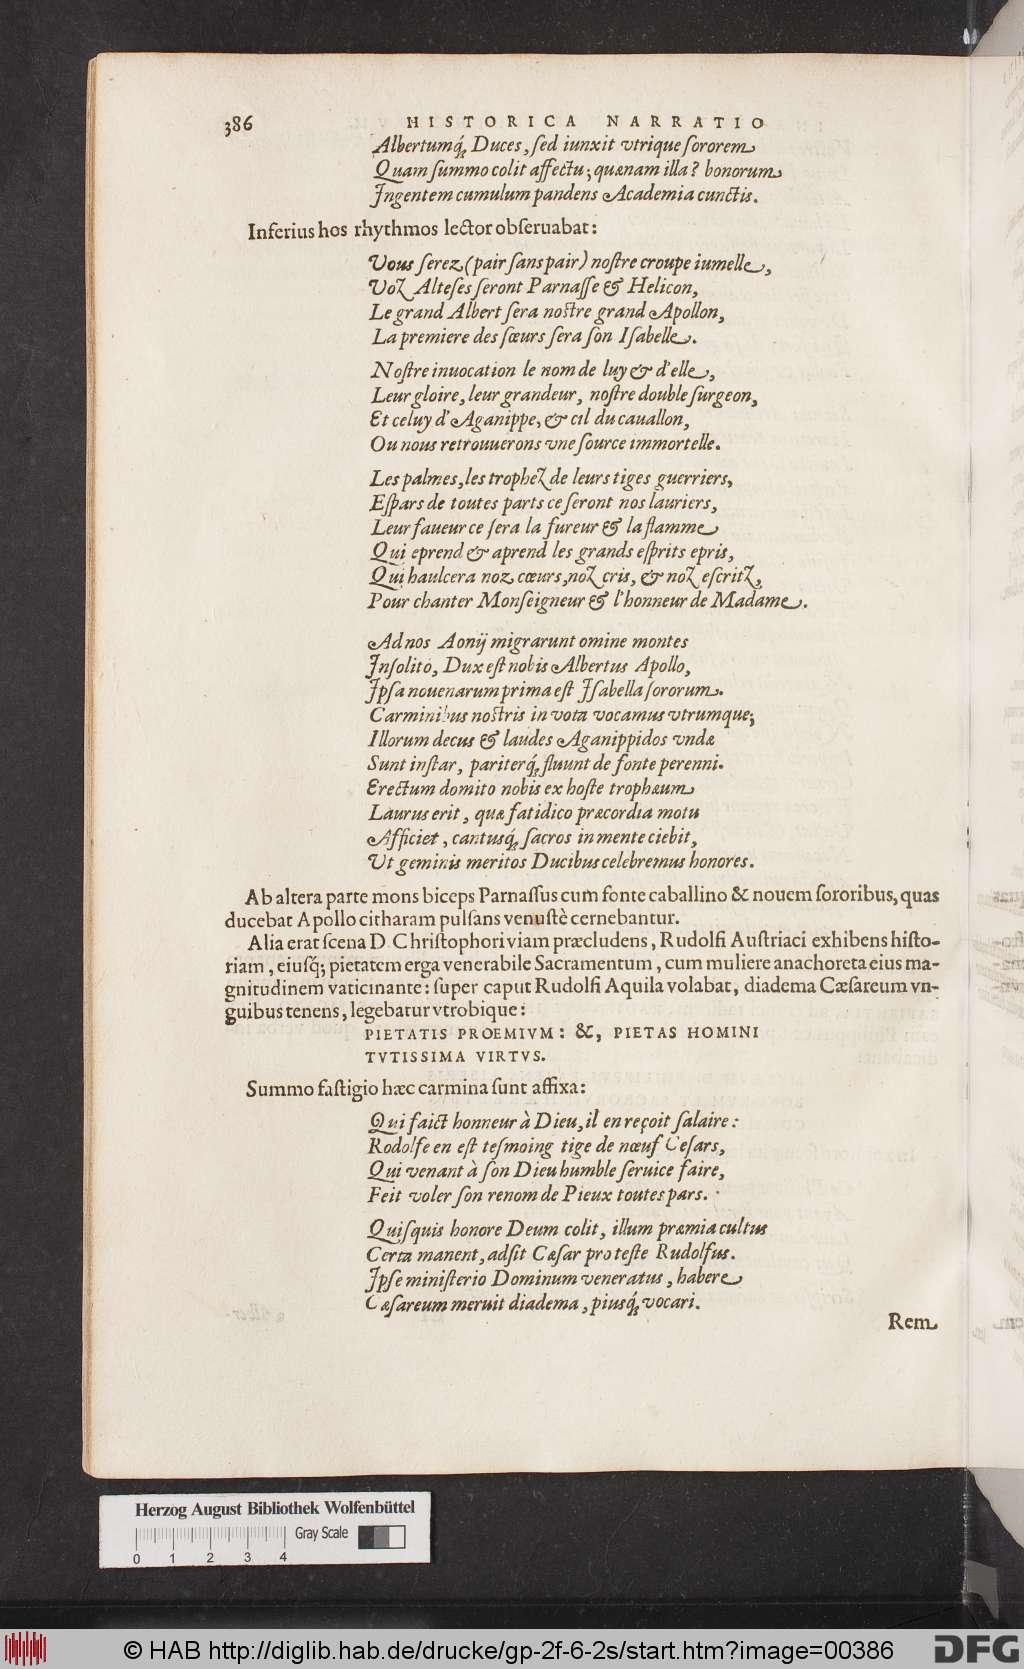 386 HISTORICA NARRATIO
Albertumq́; Duces, ſed iunxit vtrique ſororem
Quam ſummo colit affectu; quænam illa? bonorum
Ingentem cumulum pandens Academia cunctis.
Inferius hos rhythmos lector obſeruabat:
Vous ſerez (pair ſans pair) noſtre croupe iumelle,
Voz Alteſes ſeront Parnaſſe & Helicon,
Le grand Albert ſera noſtre grand Apollon,
La premiere des ſœurs ſera ſon Iſabelle.
Noſtre inuocation le nom de luy & d'elle,
Leur gloire, leur grandeur, noſtre double ſurgeon,
Et celuy d'Aganippe, & cil du cauallon,
Ou nous retrouuerons vne ſource immortelle.
Les palmes, les trophez de leurs tiges guerriers,
Eſpars de toutes parts ce ſeront nos lauriers,
Leur faueur ce ſera la fureur & la flamme
Qui eprend & aprend les grands eſprits epris,
Qui haulcera noz cœurs, noz cris, & noz eſcritz,
Pour chanter Monſeigneur & l'honneur de Madame.
Ad nos Aonij migrarunt omine montes
Inſolito, Dux eſt nobis Albertus Apollo,
Ipſa nouenarum prima eſt Iſabella ſororum.
Carminibus noſtris in vota vocamus vtrumque;
Illorum decus & laudes Aganippidos vndæ
Sunt inſtar, pariterq́; fluunt de fonte perenni.
Erectum domito nobis ex hoſte trophæum
Laurus erit, quæ fatidico præcordia motu
Afficiet, cantusq́; ſacros in mente ciebit,
Vt geminis meritos Ducibus celebremus honores.
Ab altera parte mons biceps Parnaſſus cum fonte caballino & nouem ſororibus, quas
ducebat Apollo citharam pulſans venuſtè cernebantur.
Alia erat ſcena D Chriſtophori viam præcludens, Rudolfi Auſtriaci exhibens hiſto-
riam, eiuſq́; pietatem erga venerabile Sacramentum, cum muliere anachoreta eius ma-
gnitudinem vaticinante: ſuper caput Rudolfi Aquila volabat, diadema Cæſareum vn-
guibus tenens, legebatur vtrobique:
PIETATIS PROEMIVM: &, PIETAS HOMINI
TVTISSIMA VIRTVS.
Summo faſtigio hæc carmina ſunt affixa:
Qui faict honneur à Dieu, il en reçoit ſalaire:
Rodolfe en eſt teſmoing tige de nœuf Ceſars,
Qui venant à ſon Dieu humble ſeruice faire,
Feit voler ſon renom de Pieux toutes pars.
Quiſquis honore Deum colit, illum præmia cultus
Certa manent, adſit Cæſar pro teſte Rudolfus.
Ipſe miniſterio Dominum veneratus, habere
Cæſareum meruit diadema, piusq́; vocari.
Rem
Herzog August Bibliothek Wolfenbüttel
Gray Scale
0 1 2 3 4
© HAB http://diglib.hab.de/drucke/gp-2f-6-2s/start.htm?image=00386
DFG